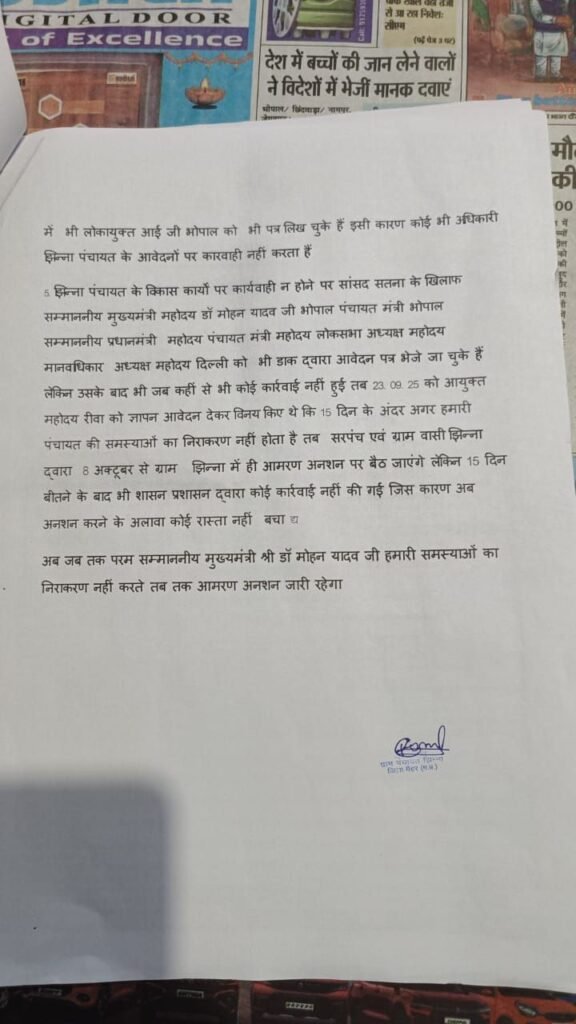 DIGITAL DOOR
of Excellence
से आ रहा निवेश:
सीएम
(पढ़ें पेज 3 पर)
देश में बच्चों की जान लेने वालों
ने विदेशों में भेजीं मानक दवाएं
भोपाल/ छिंदवाड़ा/ नागपुर.
में भी लोकायुक्त आई जी भोपाल को भी पत्र लिख चुके हैं इसी कारण कोई भी अधिकारी
झिन्ना पंचायत के आवेदनों पर कारवाही नहीं करता हैं
5. झिन्ना पंचायत के विकास कार्यों पर कार्यवाही न होने पर सांसद सतना के खिलाफ
सम्माननीय मुख्यमंत्री महोदय डॉ मोहन यादव जी भोपाल पंचायत मंत्री भोपाल
सम्माननीय प्रधानमंत्री महोदय पंचायत मंत्री महोदय लोकसभा अध्यक्ष महोदय
मानवधिकार अध्यक्ष महोदय दिल्ली को भी डाक द्वारा आवेदन पत्र भेजे जा चुके हैं
लेकिन उसके बाद भी जब कहीं से भी कोई कार्रवाई नहीं हुई तब 23. 09. 25 को आयुक्त
महोदय रीवा को ज्ञापन आवेदन देकर विनय किए थे कि 15 दिन के अंदर अगर हमारी
पंचायत की समस्याओं का निराकरण नहीं होता है तब सरपंच एवं ग्राम वासी झिन्ना
द्वारा 8 अक्टूबर से ग्राम झिन्ना में ही आमरण अनशन पर बैठ जाएंगे लेकिन 15 दिन
बीतने के बाद भी शासन प्रशासन द्वारा कोई कार्रवाई नहीं की गई जिस कारण अब
अनशन करने के अलावा कोई रास्ता नहीं बचा द्य
अब जब तक परम सम्माननीय मुख्यमंत्री श्री डॉ मोहन यादव जी हमारी समस्याओं का
निराकरण नहीं करते तब तक आमरण अनशन जारी रहेगा
ग्राम पंचायत झिन्ना
जिला-मैहर (म.प्र.)